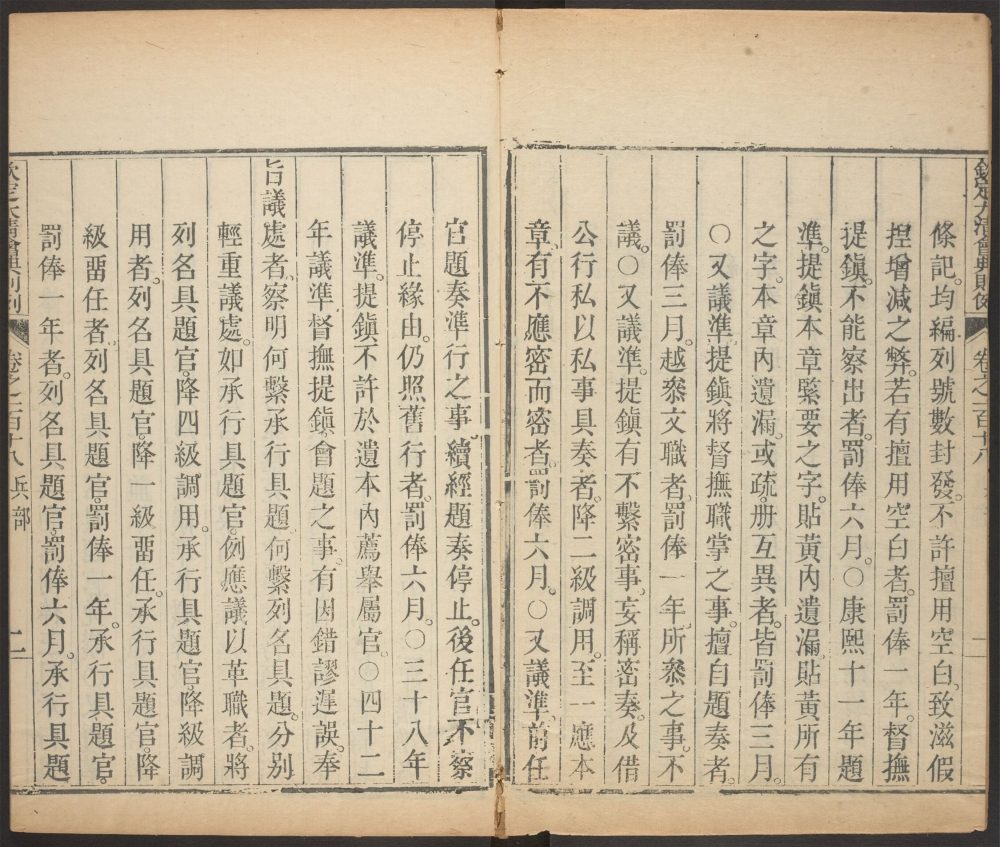 欽定大清會典則例
卷之一百十八
條記。均編列號數封發。不許擅用空白。致滋假
捏增減之弊。若有擅用空白者。罰俸一年。督撫
提鎮。不能察出者。罰俸六月。○康熙十一年題
準。提鎮本章緊要之字。貼黃內遺漏。貼黃所有
之字。本章內遺漏。或疏册互異者。皆罰俸三月。
○又議準。提鎮將督撫職掌之事。擅自題奏者。
罰俸三月。越叅文職者。罰俸一年。所叅之事。不
議。○又議準。提鎮有不繫密事。妄稱密奏。及借
公行私以私事具奏者。降二級調用。至一應本
章。有不應密而密者。罰俸六月。○又議準。前任
官題奏準行之事。續經題奏停止。後任官不察
停止緣由。仍照舊行者。罰俸六月。○三十八年
議準。提鎮不許於遺本內薦舉屬官。○四十二
年議準督撫提鎮會題之事。有因錯謬遲誤。奉
旨議處者。察明何繫承行具題。何繫列名具題。分別
輕重議處。如承行具題官。例應議以革職者。將
列名具題官。降四級調用。承行具題官。降級調
用者。列名具題官。降一級畱任。承行具題官。降
級畱任者。列名具題官。罰俸一年。承行具題官。
罰俸一年者。列名具題官。罰俸六月。承行具題
欽定大清會典則例
卷之一百十八 兵部
二